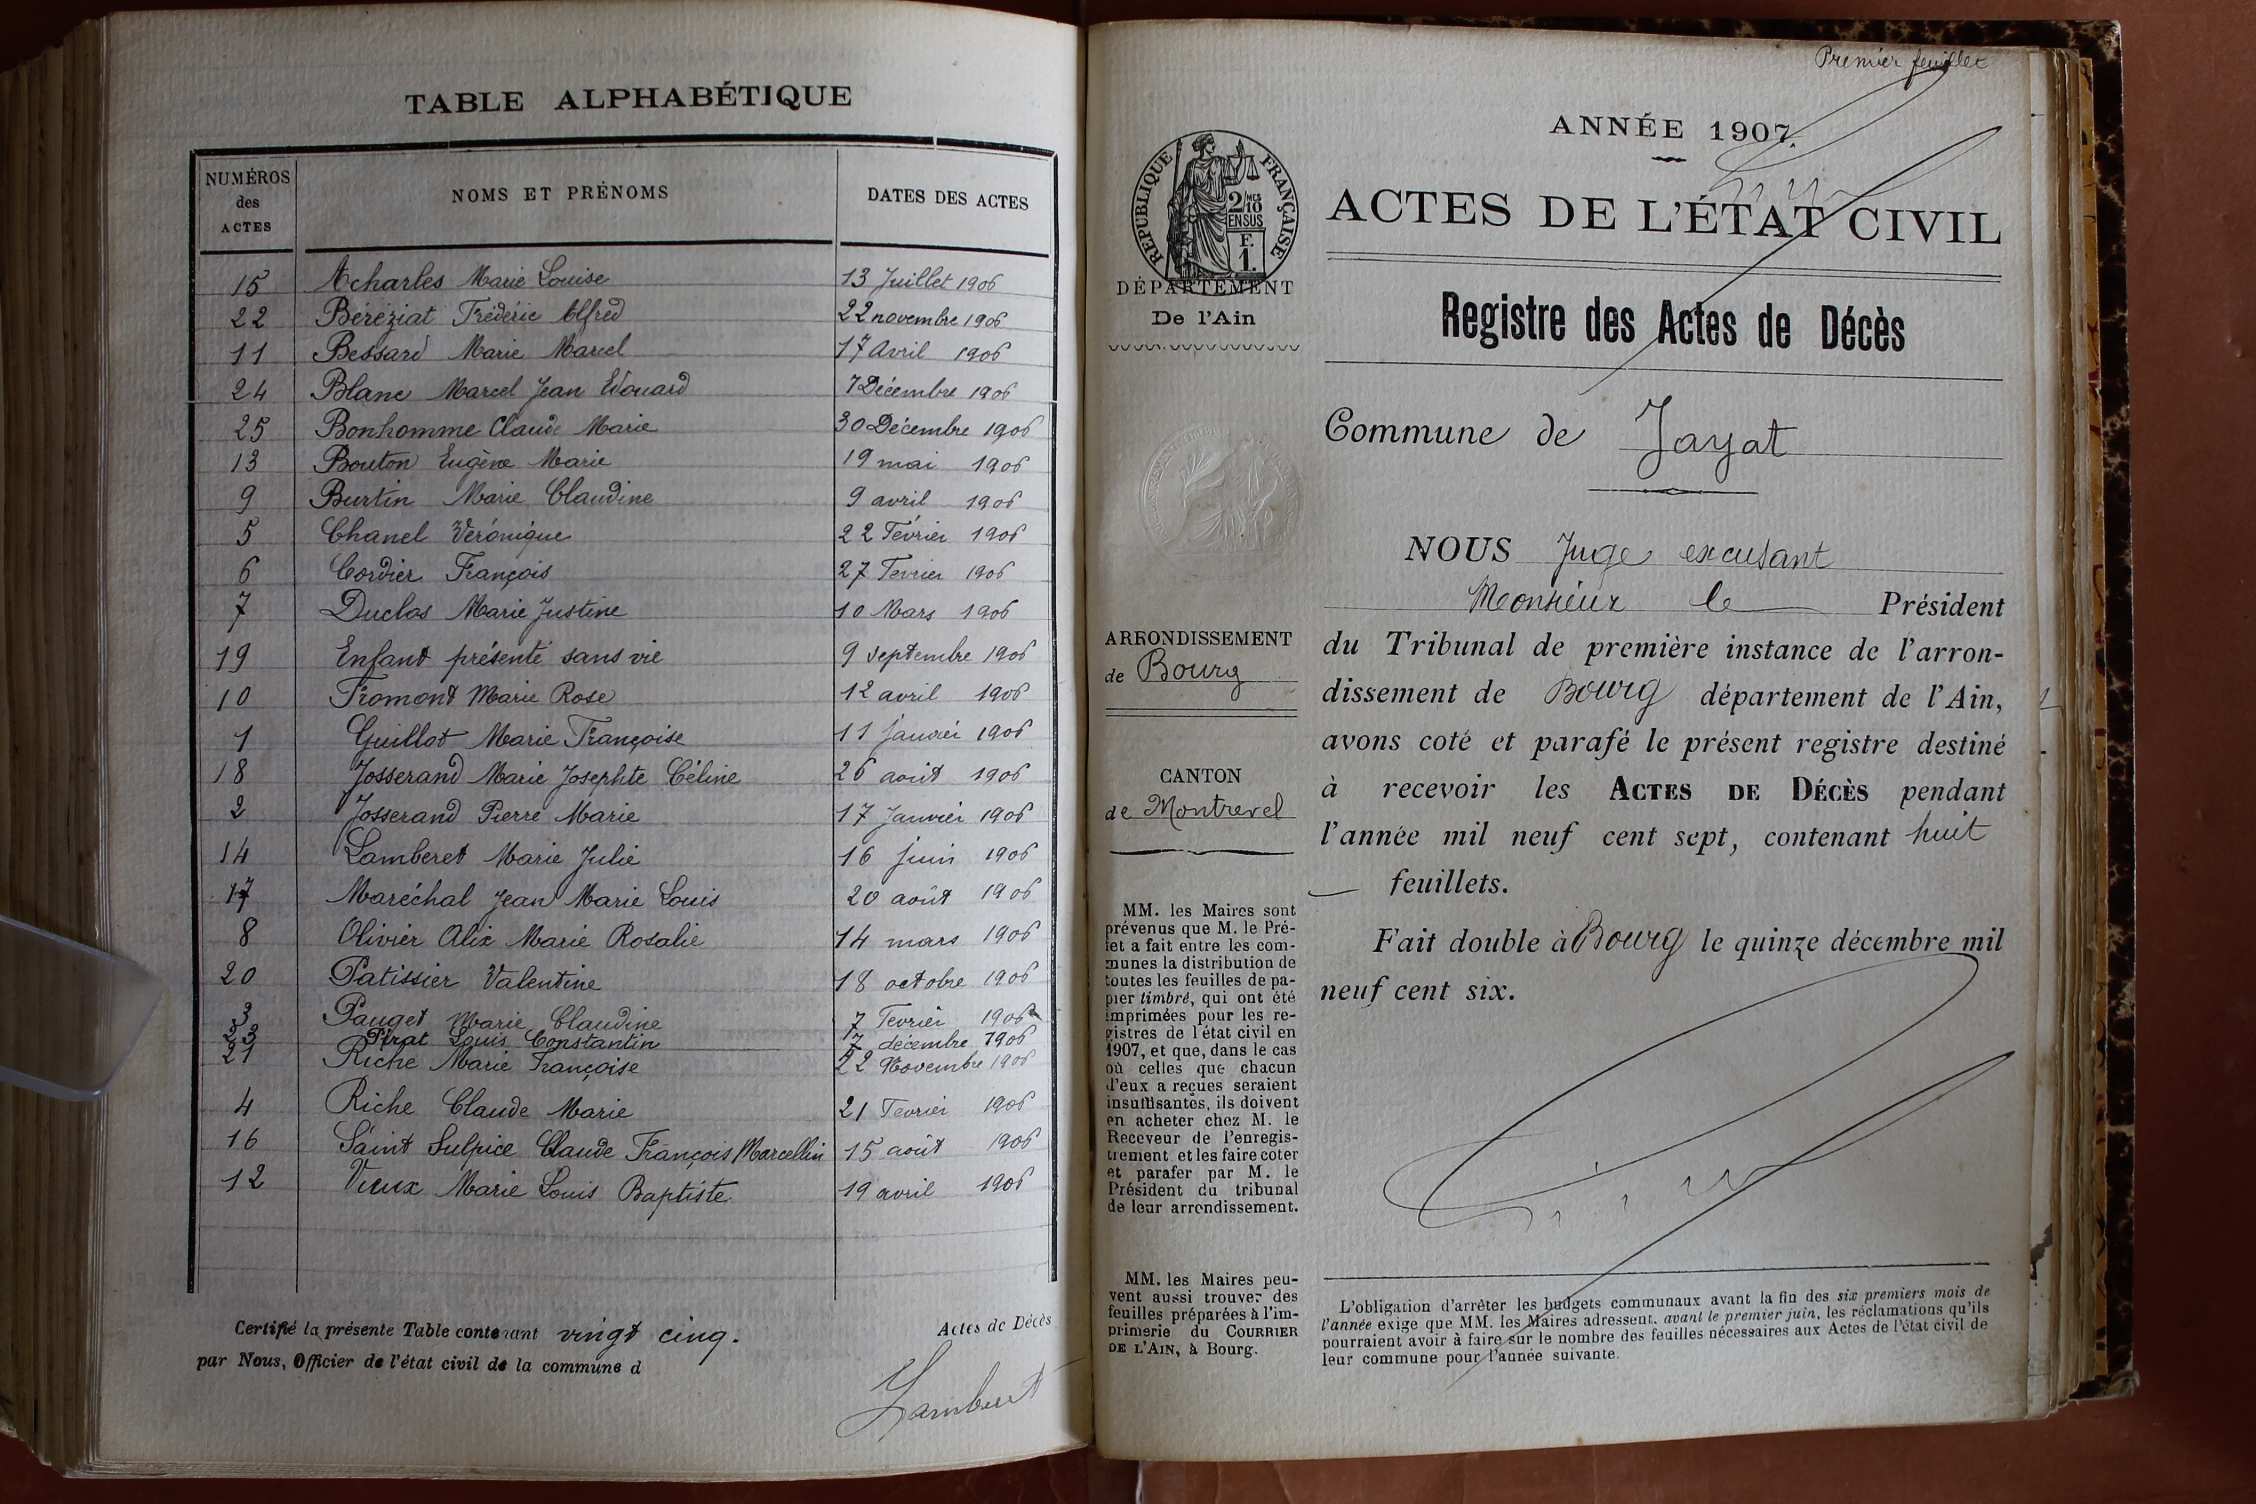 TABLE ALPHABÉTIQUE
NUMÉROS des ACTES NOMS ET PRÉNOMS DATES DES ACTES
15 Acharles Marie Louise 13 Juillet 1906
22 Béréziat Frédéric Alfred 22 novembre 1906
11 Bessard Marie Marcel 17 Avril 1906
24 Blanc Marcel Jean Edouard 7 Décembre 1906
25 Bonhomme Claude Marie 30 Décembre 1906
13 Bouton Eugène Marie 19 mai 1906
9 Burtin Marie Claudine 9 avril 1906
5 Chanel Véronique 22 Février 1906
6 Cordier François 27 Fevrier 1906
7 Duclos Marie Justine 10 Mars 1906
19 Enfant présenté sans vie 9 septembre 1906
10 Fromont Marie Rose 12 avril 1906
1 Guillot Marie Françoise 11 janvier 1906
18 Josserand Marie Josephte Céline 26 août 1906
2 Josserand Pierre Marie 17 Janvier 1906
14 Lamberet Marie Julie 16 juin 1906
17 Maréchal Jean Marie Louis 20 août 1906
8 Olivier Alix Marie Rosalie 14 mars 1906
20 Patissier Valentine 18 octobre 1906
3 Pauget Marie Claudine 7 Fevrier 1906
23 Pirat Louis Constantin 7 décembre 1906
21 Riche Marie Françoise 22 Novembre 1906
4 Riche Claude Marie 21 Fevrier 1906
16 Saint Sulpice Claude François Marcellin 15 août 1906
12 Vieux Marie Louis Baptiste 19 avril 1906
Certifié la présente Table contenant vingt cinq. Actes de Décès
par Nous, Officier de l'état civil de la commune d
Premier feuillet
ANNÉE 1907.
ACTES DE L'ÉTAT CIVIL
Registre des Actes de Décès
Commune de Jayat
NOUS Juge excusant
Monsieur le Président
du Tribunal de première instance de l'arron-
dissement de Bourg département de l'Ain,
avons coté et parafé le présent registre destiné
à recevoir les ACTES DE DÉCÈS pendant
l'année mil neuf cent sept, contenant huit
feuillets.
Fait double à Bourg le quinze décembre mil
neuf cent six.
L'obligation d'arrêter les budgets communaux avant la fin des six premiers mois de
l'année exige que MM. les Maires adressent, avant le premier juin, les réclamations qu'ils
pourraient avoir à faire sur le nombre des feuilles nécessaires aux Actes de l'état civil de
leur commune pour l'année suivante.
RÉPUBLIQUE FRANÇAISE
2/MES
10
EN SUS
F.
1.
DÉPARTEMENT
De l'Ain
ARRONDISSEMENT
de Bourg
CANTON
de Montrevel
MM. les Maires sont
prévenus que M. le Pré-
fet a fait entre les com-
munes la distribution de
toutes les feuilles de pa-
pier timbré, qui ont été
imprimées pour les re-
gistres de l'état civil en
1907, et que, dans le cas
où celles que chacun
d'eux a reçues seraient
insuffisantes, ils doivent
en acheter chez M. le
Receveur de l'enregis-
trement et les faire coter
et parafer par M. le
Président du tribunal
de leur arrondissement.
MM. les Maires peu-
vent aussi trouver des
feuilles préparées à l'im-
primerie du COURRIER
DE L'AIN, à Bourg.